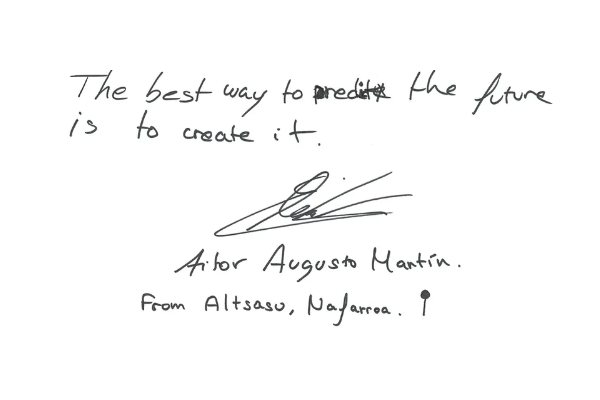 The best way to predict the future
is to create it.
Aitor Augusto Martín.
From Altsasu, Nafarroa.